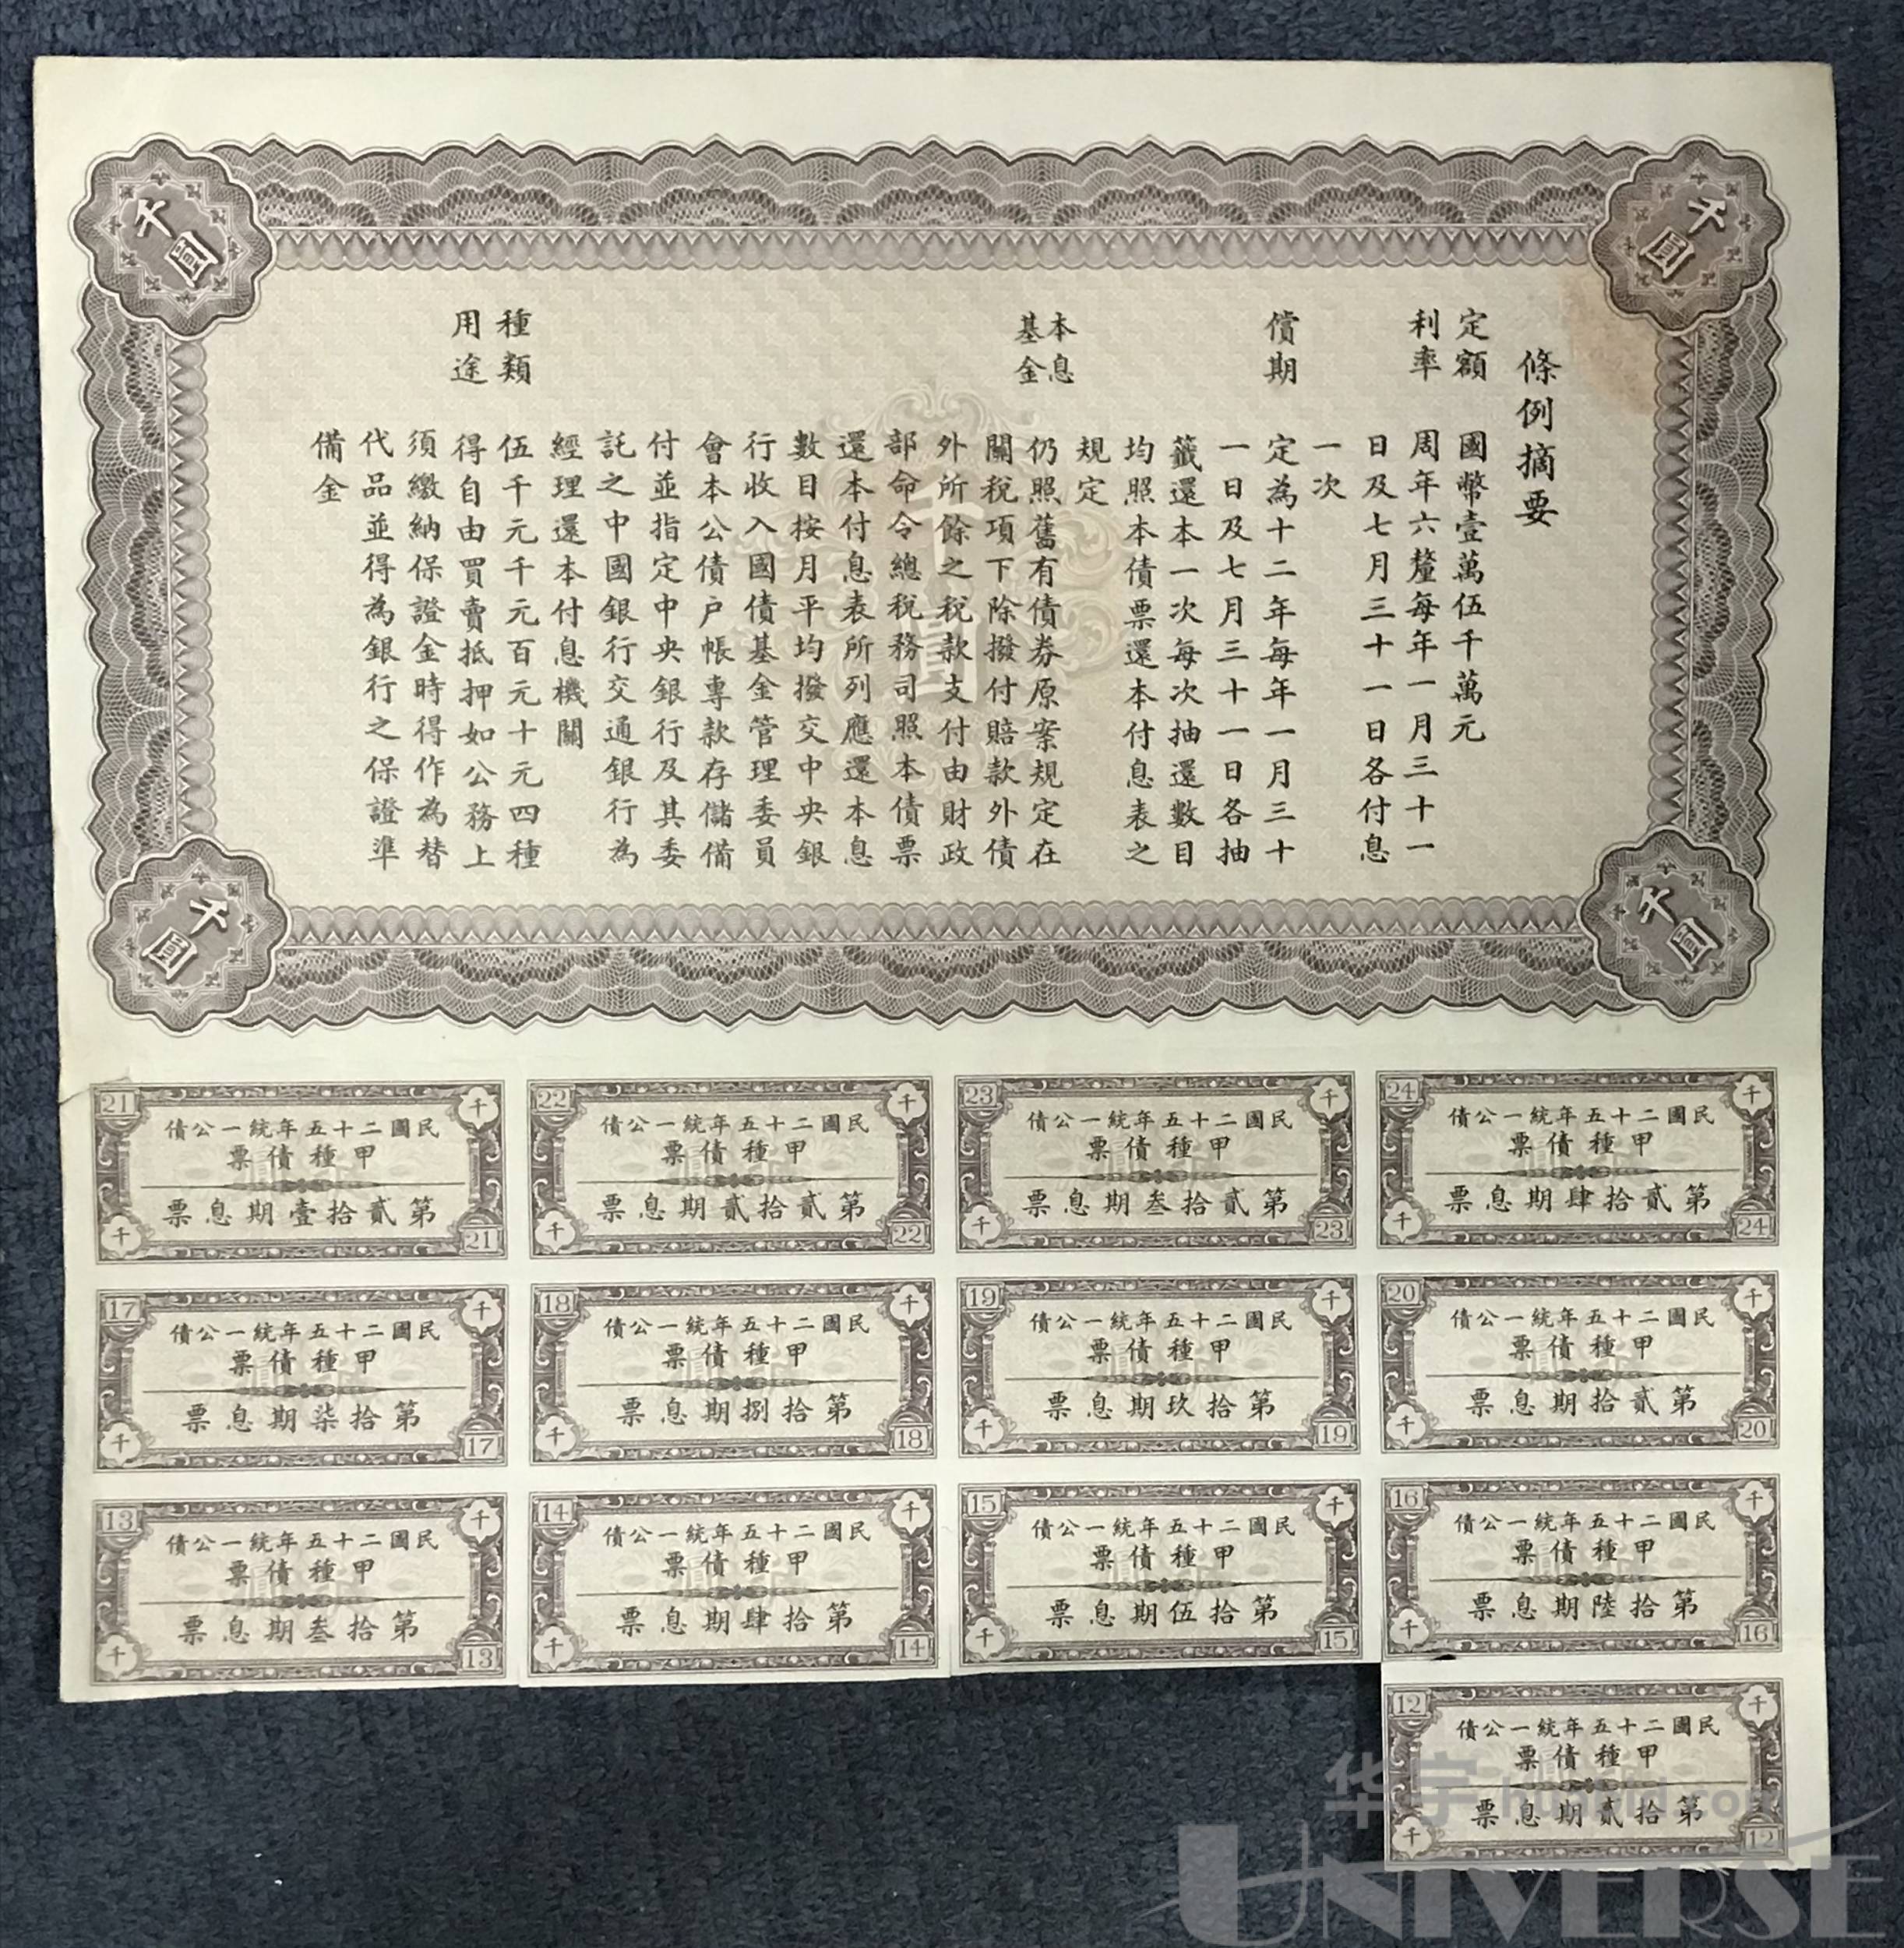 條例摘要
定額 國幣壹萬伍千萬元
利率 周年六釐每年一月三十一
日及七月三十一日各付息
一次
償期 定為十二年每年一月三十
一日及七月三十一日各抽
籤還本一次每次抽還數目
均照本債票還本付息表之
規定
本息基金 仍照舊有債券原案規定在
關稅項下除撥付賠款外債
外所餘之稅款支付由財政
部命令總稅務司照本債票
還本付息表所列應還本息
數目按月平均撥交中央銀
行收入國債基金管理委員
會本公債戶帳專款存儲備
付並指定中央銀行及其委
託之中國銀行交通銀行為
經理還本付息機關
種類 伍千元千元百元十元四種
用途 得自由買賣抵押如公務上
須繳納保證金時得作為替
代品並得為銀行之保證準
備金
千圓
千圓
千圓
千圓
千圓
24 千
民國二十五年統一公債
甲種債票
第貳拾肆期息票
千 24
23 千
民國二十五年統一公債
甲種債票
第貳拾叁期息票
千 23
22 千
民國二十五年統一公債
甲種債票
第貳拾貳期息票
千 22
21 千
民國二十五年統一公債
甲種債票
第貳拾壹期息票
千 21
20 千
民國二十五年統一公債
甲種債票
第貳拾期息票
千 20
19 千
民國二十五年統一公債
甲種債票
第拾玖期息票
千 19
18 千
民國二十五年統一公債
甲種債票
第拾捌期息票
千 18
17 千
民國二十五年統一公債
甲種債票
第拾柒期息票
千 17
16 千
民國二十五年統一公債
甲種債票
第拾陸期息票
千 16
15 千
民國二十五年統一公債
甲種債票
第拾伍期息票
千 15
14 千
民國二十五年統一公債
甲種債票
第拾肆期息票
千 14
13 千
民國二十五年統一公債
甲種債票
第拾叁期息票
千 13
12 千
民國二十五年統一公債
甲種債票
第拾貳期息票
千 12
华宇
UNIVERSE